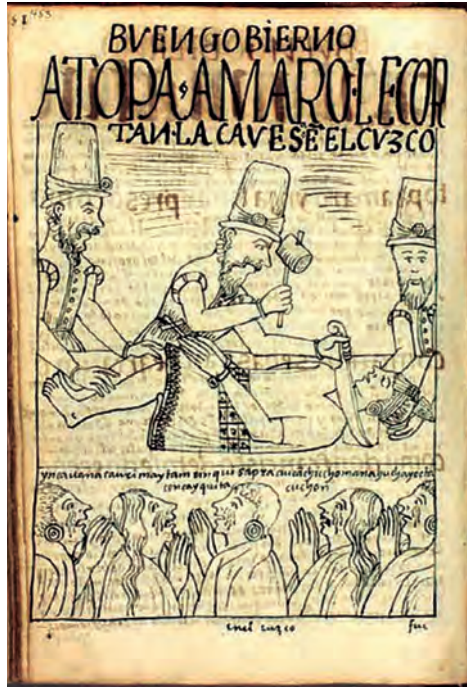 453
BVEN GOBIERNO
A TOPA AMARO·LE COR
TAN·LA CAVESE͂ EL CVZCO
yncauanacauri maytam rinqui sapra aucāchiccho mana huchayocta
concayquita cuchon
enel cuzco